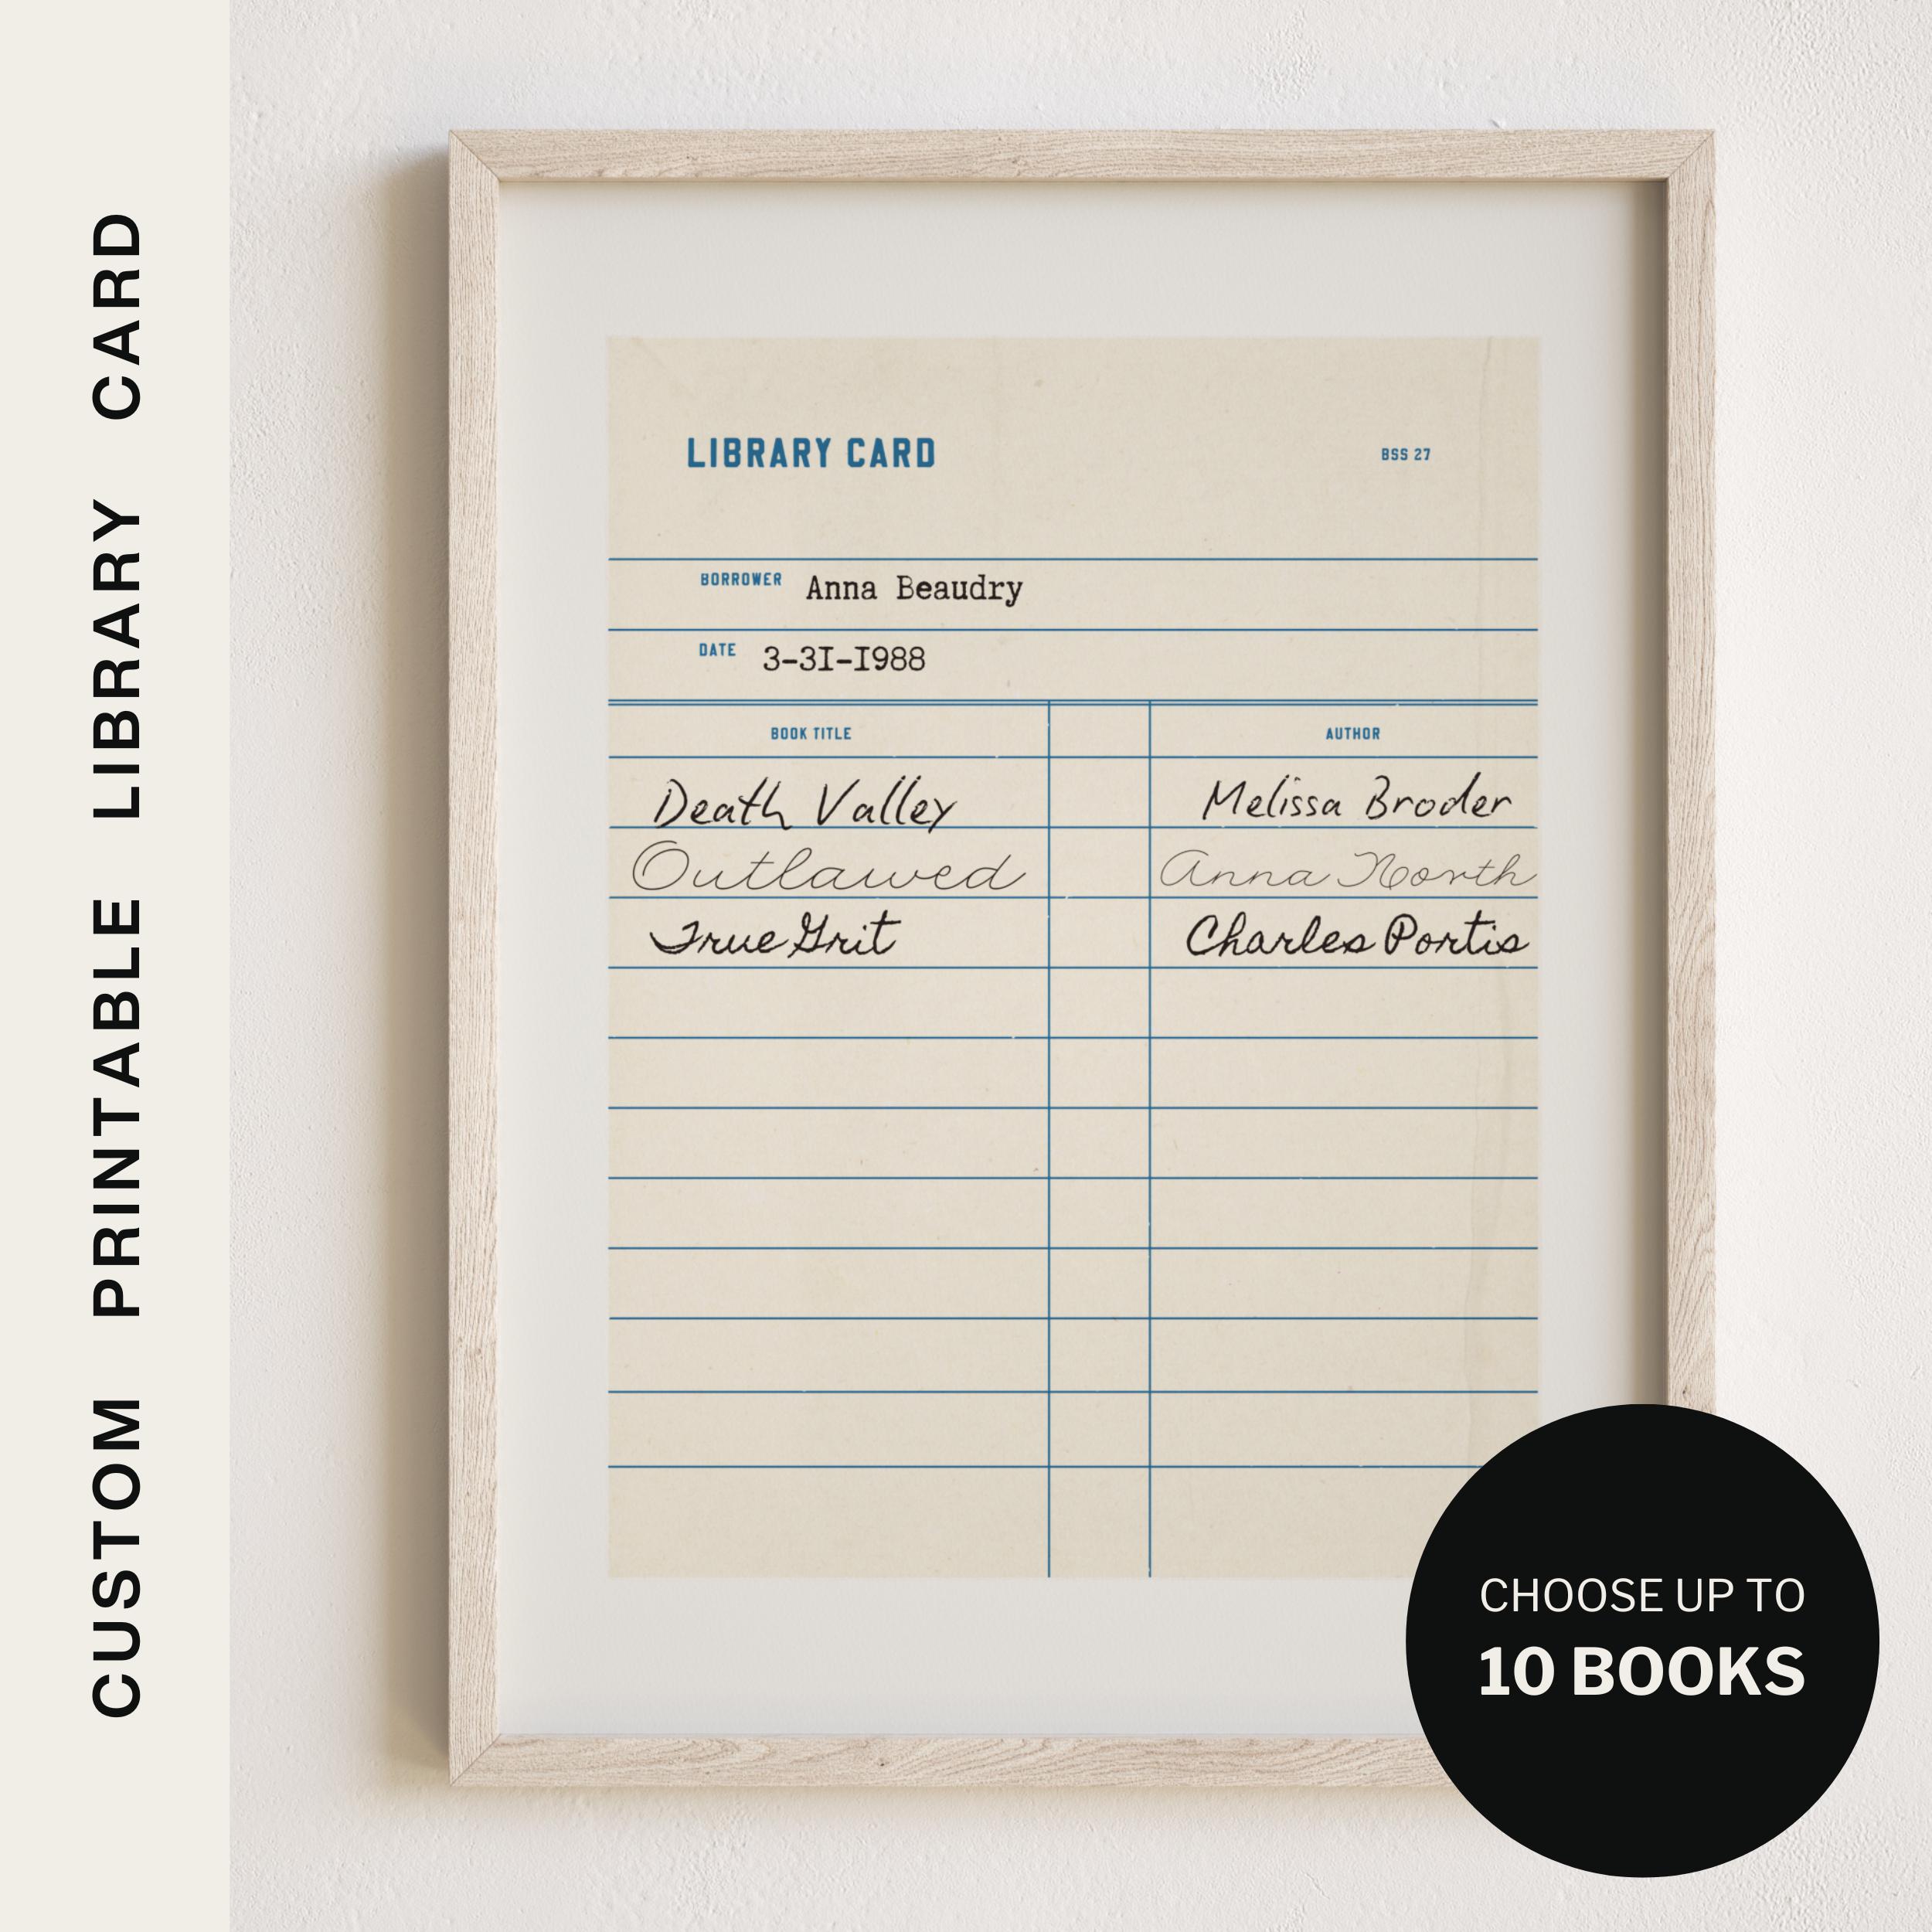 CUSTOM PRINTABLE LIBRARY CARD
LIBRARY CARD BSS 27
BORROWER Anna Beaudry
DATE 3-3I-I988
BOOK TITLE AUTHOR
Death Valley Melissa Broder
Outlawed Anna North
True Grit Charles Portis
CHOOSE UP TO
10 BOOKS